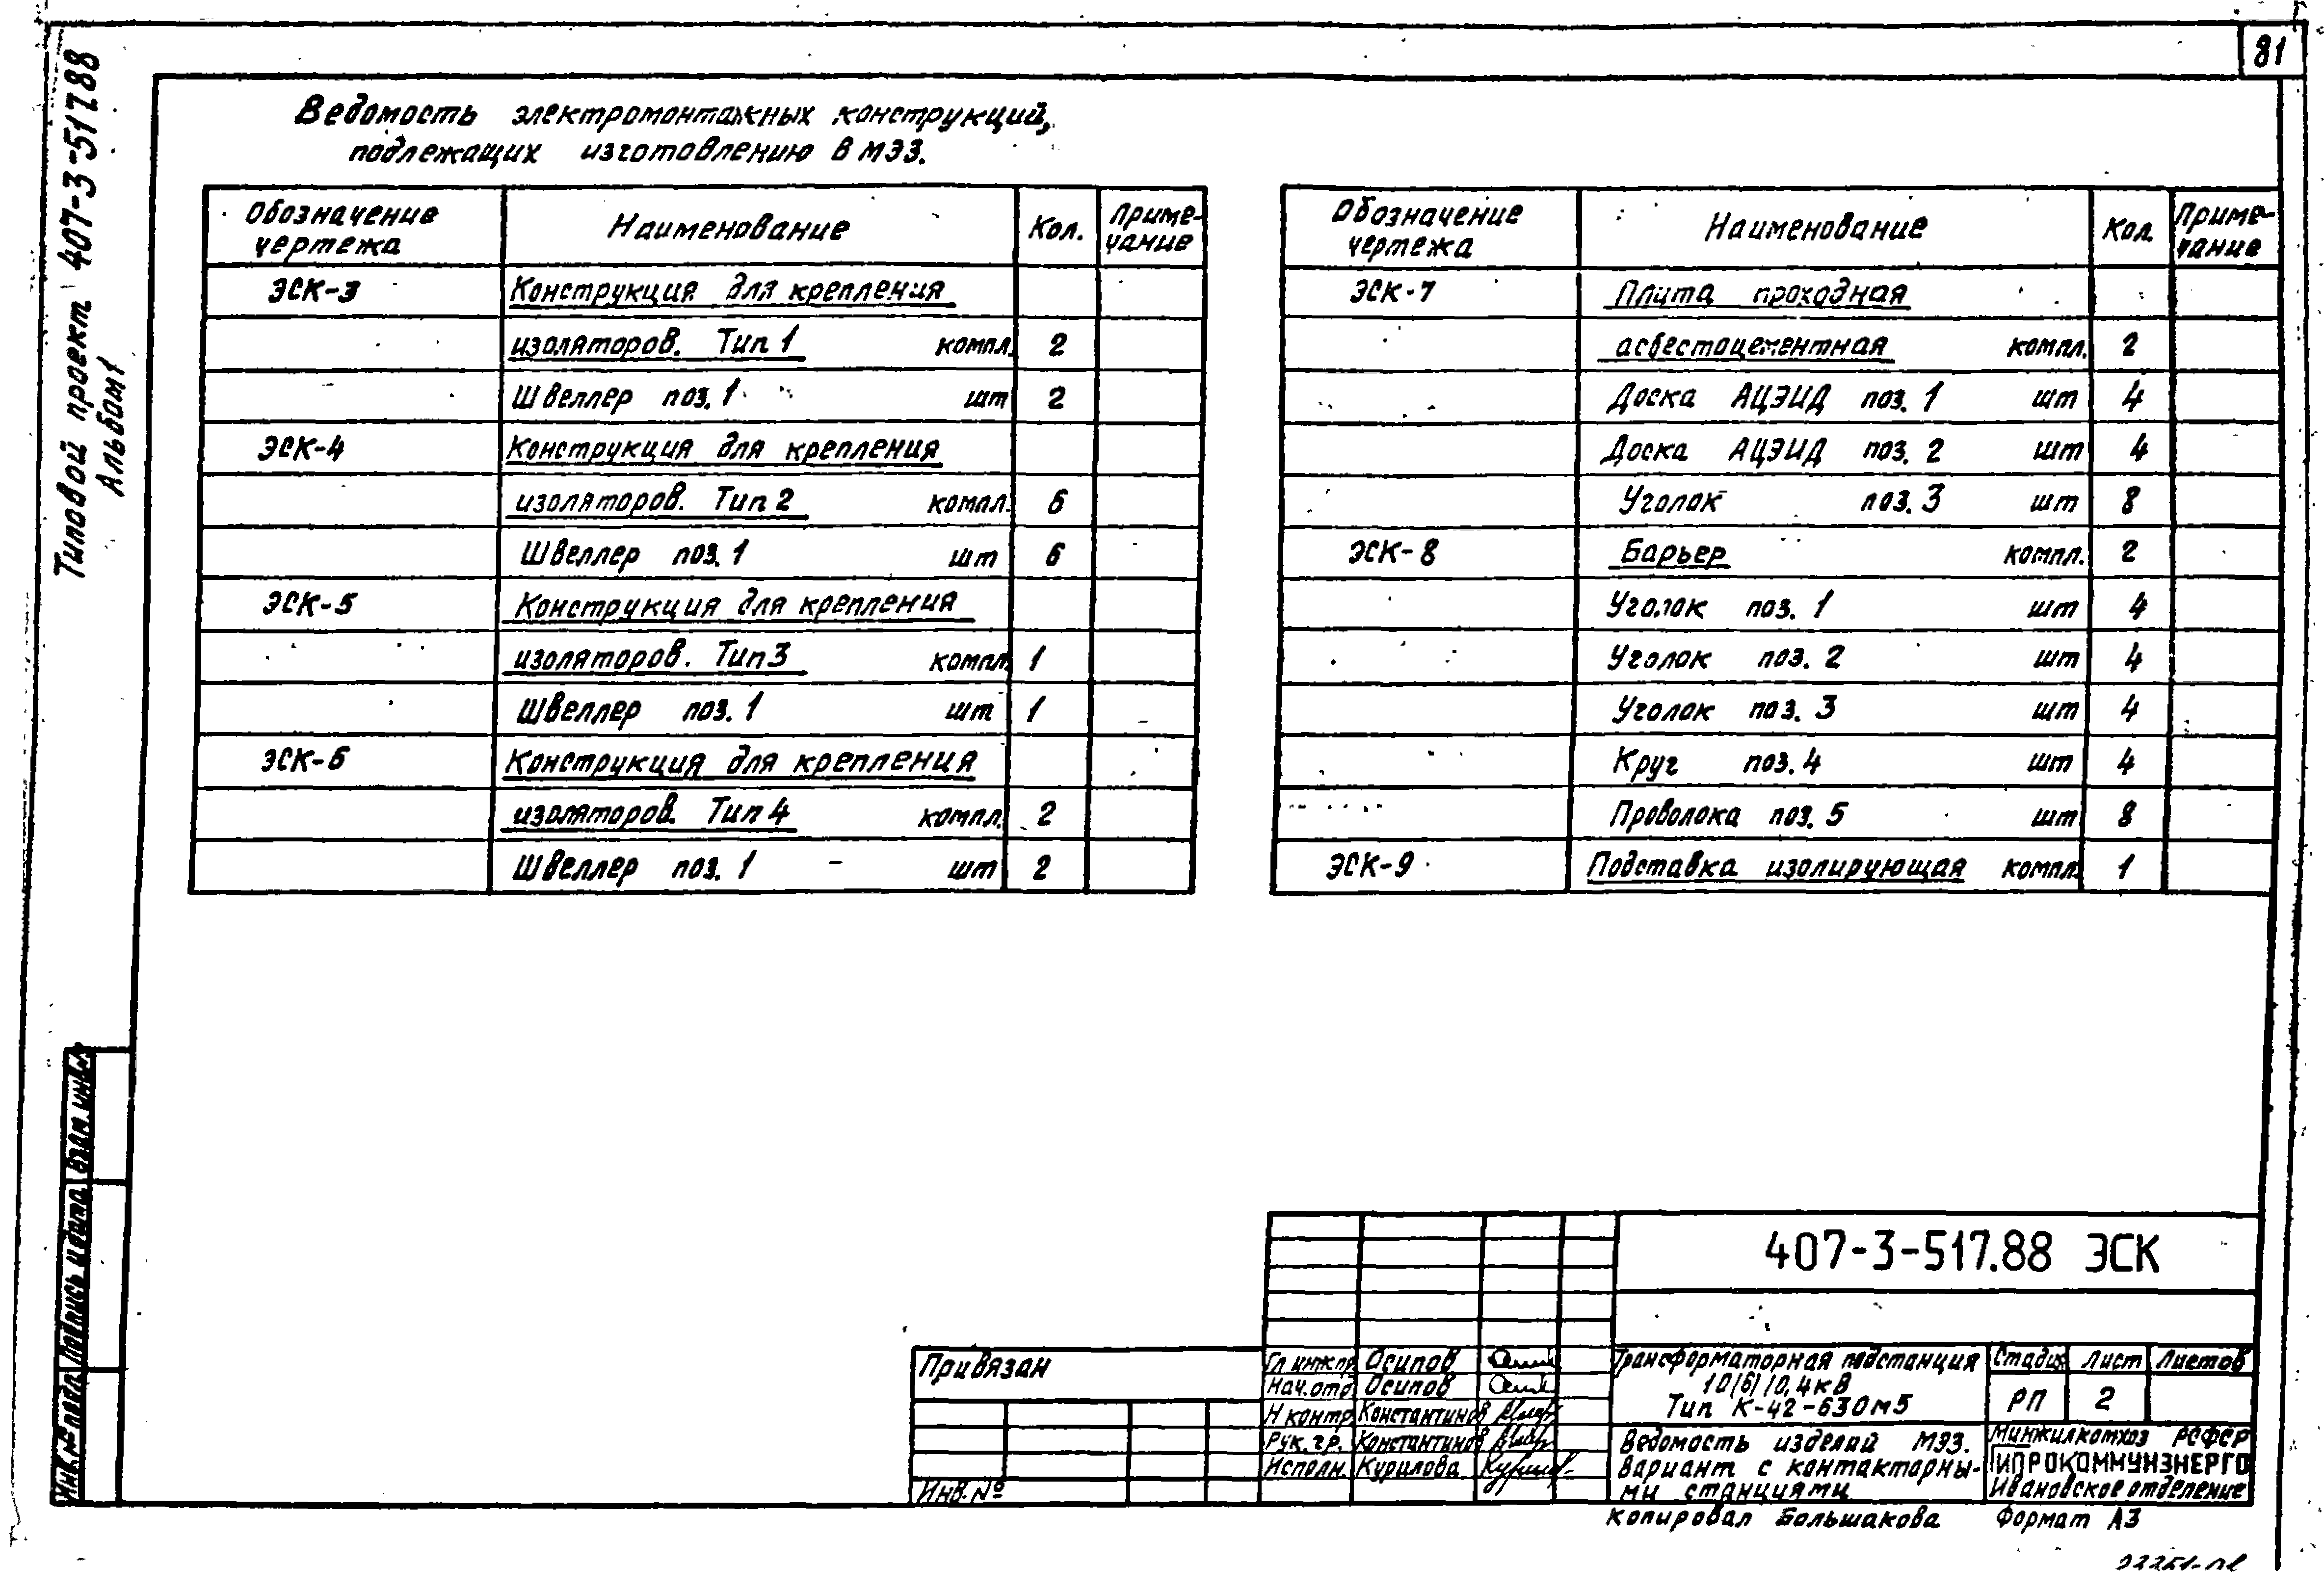 81
Типовой проект 407-3-517.88
Альбом 1
Ведомость электромонтажных конструкций,
подлежащих изготовлению в МЭЗ.
Обозначение чертежа Наименование Кол. Приме-чание
ЭСК-3 Конструкция для крепления
изоляторов. Тип 1 компл. 2
Швеллер поз. 1 шт 2
ЭСК-4 Конструкция для крепления
изоляторов. Тип 2 компл. 6
Швеллер поз. 1 шт 6
ЭСК-5 Конструкция для крепления
изоляторов. Тип 3 компл. 1
Швеллер поз. 1 шт 1
ЭСК-6 Конструкция для крепления
изоляторов. Тип 4 компл. 2
Швеллер поз. 1 шт 2
Обозначение чертежа Наименование Кол. Приме-чание
ЭСК-7 Плита проходная
асбестоцементная компл. 2
Доска АЦЭИД поз. 1 шт 4
Доска АЦЭИД поз. 2 шт 4
Уголок поз. 3 шт 8
ЭСК-8 Барьер компл. 2
Уголок поз. 1 шт 4
Уголок поз. 2 шт 4
Уголок поз. 3 шт 4
Круг поз. 4 шт 4
Проволока поз. 5 шт 8
ЭСК-9 Подставка изолирующая компл. 1
Инв.№ подл. Подпись и дата Взам. инв.№
Привязан
Инв. №
407-3-517.88 ЭСК
Гл. инж. пр. Осипов
Нач. отд. Осипов
Н контр. Константинов
Рук. гр. Константинов
Исполн. Курилова
Трансформаторная подстанция
10(6)/0,4кВ
Тип К-42-630м5
Стадия Лист Листов
РП 2
Ведомость изделий МЭЗ.
Вариант с контакторны-
ми станциями
Минжилкомхоз РСФСР
ГИПРОКОММУНЭНЕРГО
Ивановское отделение
Копировал Большакова Формат А3